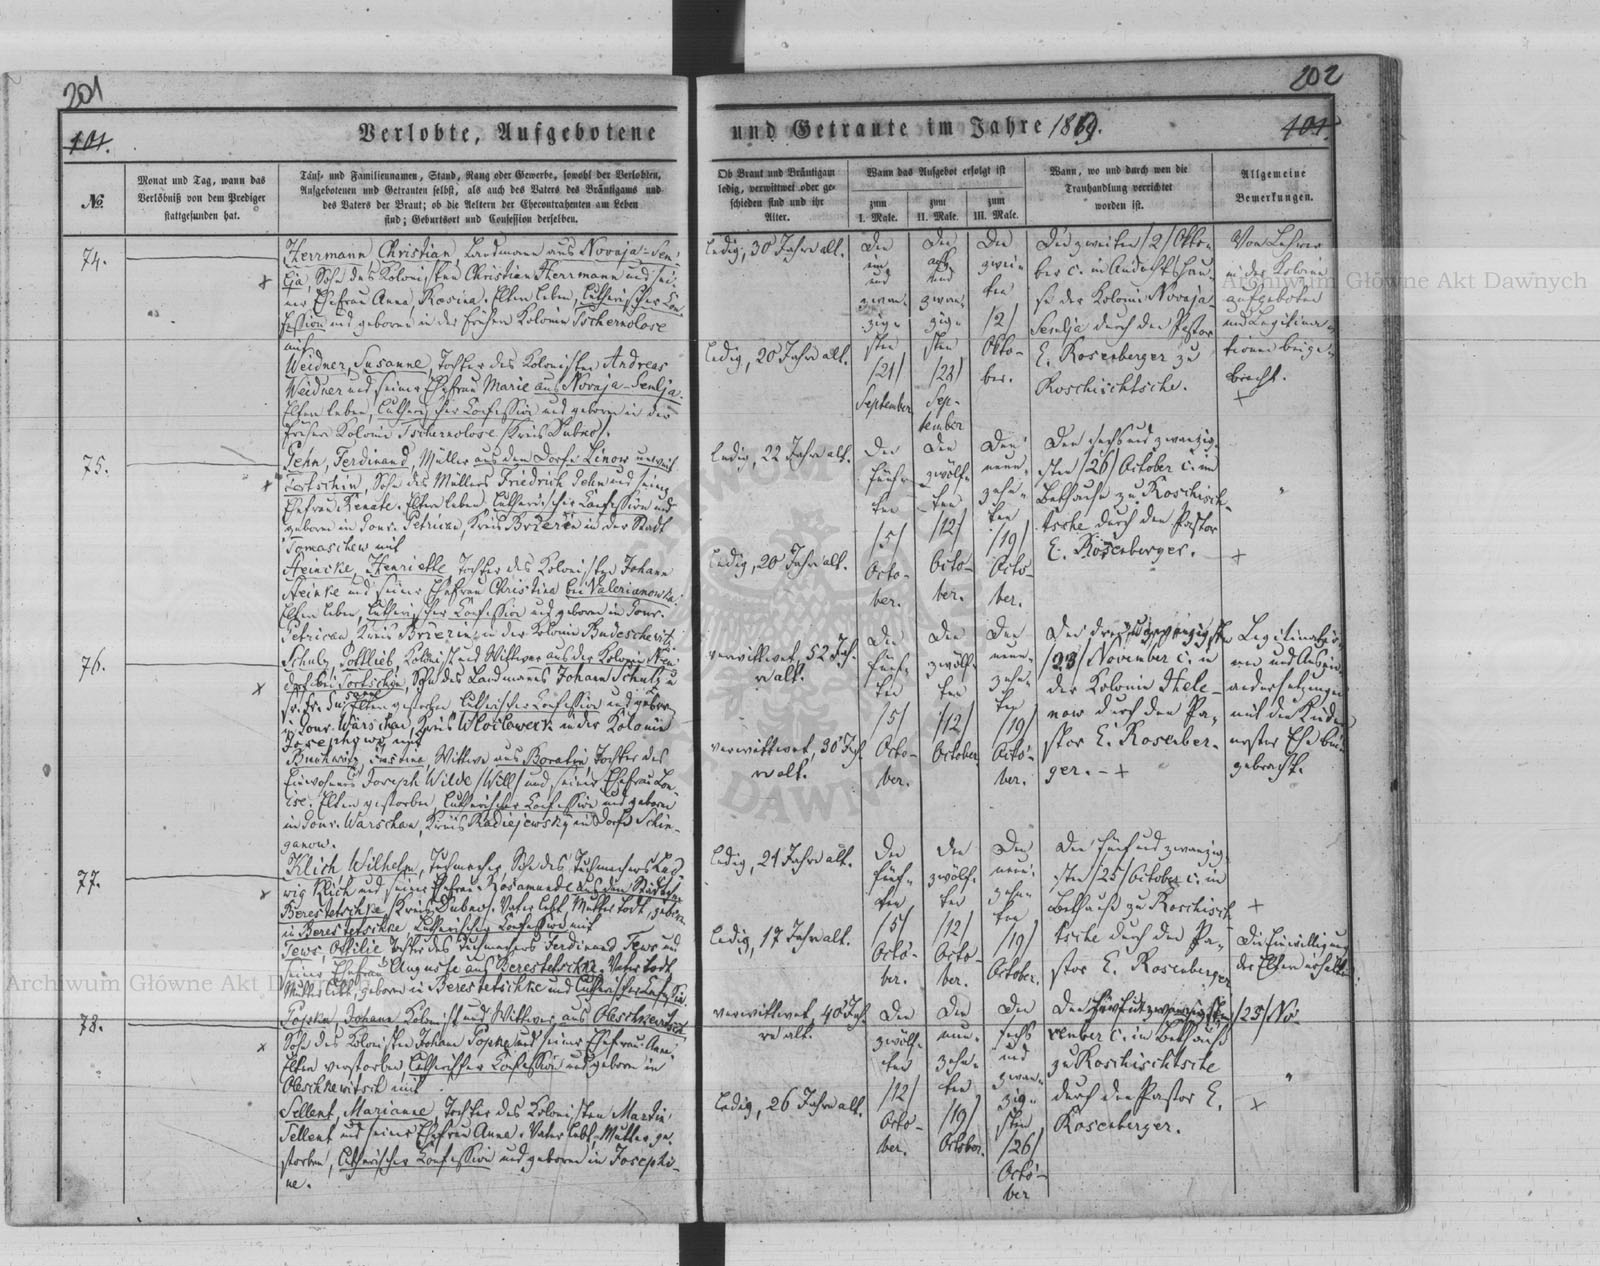 201
202
101.
Verlobte, Aufgebotene
und Getraute im Jahre 1869.
101.
№.
Monat und Tag, wann das
Verlöbniß von dem Prediger
stattgefunden hat.
Tauf- und Familiennamen, Stand, Rang oder Gewerbe, sowohl der Verlobten,
Aufgebotenen und Getrauten selbst, als auch des Vaters des Bräutigams und
des Vaters der Braut; ob die Aeltern der Ehecontrahenten am Leben
sind; Geburtsort und Confession derselben.
Ob Braut und Bräutigam
ledig, verwittwet oder ge-
schieden sind und ihr
Alter.
Wann das Aufgebot erfolgt ist
zum
I. Male.
zum
II. Male.
zum
III. Male.
Wann, wo und durch wen die
Trauhandlung verrichtet
worden ist.
Allgemeine
Bemerkungen.
74.
Herrmann, Christian, Landmann aus Novaja-Sem-
lja, Sohn des Kolonisten Christian Herrmann und sei-
ner Ehefrau Anna, Rosina. Eltern leben, lutherischer Con-
fession und geboren in der frühern Kolonie Tschernolose
mit
Weidner, Susanne, Tochter des Kolonisten Andreas
Weidner und seiner Ehefrau Marie aus Novaja-Semlja.
Eltern leben, lutherischer Confession und geboren in der
frühern Kolonie Tschernolose /Kreis Dubno/.
ledig, 30 Jahre alt.
ledig, 20 Jahre alt.
Den
ein
und
zwan-
zig-
sten
/21/
September
Den
acht
und
zwan-
zig-
sten
/28/
Sep-
tember
Den
zwei-
ten
/2/
Okto-
ber.
Den zweiten /2/ Okto-
ber c. im Andachtshau-
se der Kolonie Novaja-
Semlja durch den Pastor
E. Rosenberger zu
Roschischtsche.
Von Lehrer
in der Kolonie
aufgeboten
und Legitima-
tionen beige-
bracht.
75.
Jehn, Ferdinand, Müller aus dem Dorfe Linow unweit
Tortschin, Sohn des Müllers Friedrich Jehn und seiner
Ehefrau Renate. Eltern leben, lutherischer Confession und
geboren in Gouv. Petricau, Kreis Brzezin in der Stadt
Tomaschew mit
Heincke, Henriette, Tochter des Kolonisten Johann
Heinke und seiner Ehefrau Christina bei Valerianowka.
Eltern leben, lutherischer Confession und geboren in Gouv.
Petricau, Kreis Brzezin, in der Kolonie
ledig, 22 Jahre alt.
ledig, 20 Jahre alt.
Den
fünf-
ten
/5/
Octo-
ber.
Den
zwölf-
ten
/12/
Octo-
ber.
Den
neun-
zehn-
ten
/19/
Octo-
ber.
Den sechsundzwanzig-
sten /26/ October c. im
Bethause zu Roschisch-
tsche durch den Pastor
E. Rosenberger.
76.
Schulz, Gottlieb, Kolonist und Wittwer aus der Kolonie Neu-
dorf bei Tortschin, Sohn des Landmanns Johann Schulz u
gestorben lutherischer Confession und geboren
in Gouv. Warschau, Kreis Wloclawek in der Kolonie
mit
Justina, Wittwe aus Boratin, Tochter des
Einwohners Joseph Wilde /Will/ und seiner Ehefrau Lou-
ise. Eltern gestorben, lutherischer Confession und geboren
in Gouv. Warschau, Kreis Radiejewsky in Dorf Schin-
ganow.
verwittwet, 52 Jah-
re alt.
verwittwet, 30 Jah-
re alt.
Den
fünf-
ten
/5/
Octo-
ber.
Den
zwölf-
ten
/12/
October
Den
neun-
zehn-
ten
/19/
Octo-
ber.
Den dreiundzwanzigsten
/23/ November c. in
der Kolonie
durch den Pa-
stor E. Rosenber-
ger.
Legitimatio-
nen und Ausein-
andersetzungen
mit den Kindern
erster Ehe bei-
gebracht.
77.
Klich, Wilhelm, Tuchmacher, Sohn des Tuchmachers Lud-
wig Klich und seiner Ehefrau Rosamunde aus dem Städtchen
Berestetschke /Kreis Dubno/. Vater lebt, Mutter todt, geboren
in Berestetschke lutherischer Confession mit
Tews, Ottilie, Tochter des Tuchmachers Ferdinand Tews und
seiner Ehefrau Auguste aus Berestetschke. Vater todt,
Mutter lebt, geboren in Berestetschke und lutherischer Confession.
ledig, 21 Jahre alt.
ledig, 17 Jahre alt.
Den
fünf-
ten
/5/
Octo-
ber.
Den
zwölf-
ten
/12/
Octo-
ber.
Den
neun-
zehn-
ten
/19/
October.
Den fünfundzwanzig-
sten /25/ October c. im
Bethause zu Roschisch-
tsche durch den Pa-
stor E. Rosenberger
Die Einwilligung
der Eltern erhalten.
78.
Popke, Johann, Kolonist und Wittwer aus Oleschkewitsch
Sohn des Kolonisten Johann Popke und seiner Ehefrau Anne.
Eltern verstorben, lutherischer Confession und geboren in
Oleschkewitsch mit
Sellent, Marianne, Tochter des Kolonisten Martin
Sellent und seiner Ehefrau Anne. Vater lebt, Mutter ge-
storben, lutherischer Confession und geboren in Josephi-
ne.
verwittwet, 40 Jah-
re alt.
ledig, 26 Jahre alt.
Den
zwölf-
ten
/12/
Octo-
ber.
Den
neun-
zehn-
ten
/19/
October.
Den
sechs
und
zwan-
zig-
sten
/26/
Octo-
ber
Den fünfundzwanzigsten /25/ No-
vember c. im Bethause
zu Roschischtsche
durch den Pastor E.
Rosenberger.
Archiwum Główne Akt Dawnych
Archiwum Główne Akt Dawnych